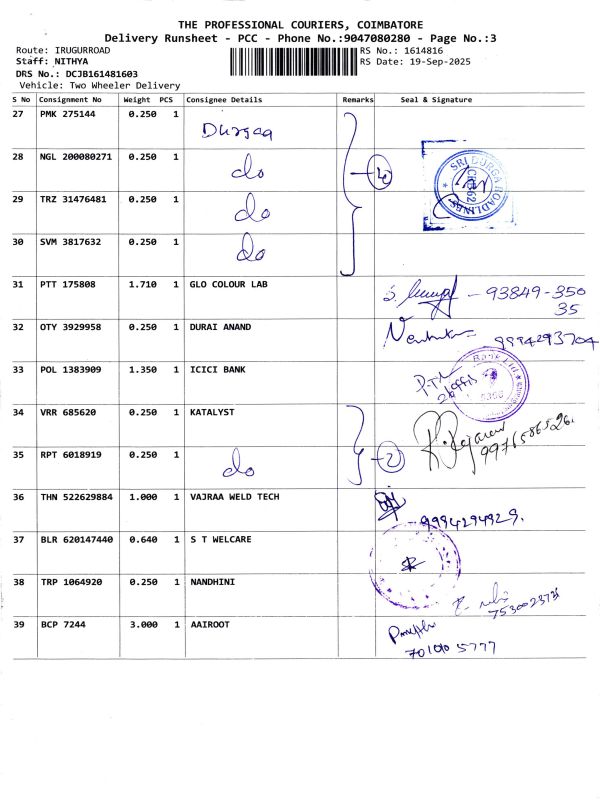 THE PROFESSIONAL COURIERS, COIMBATORE
Delivery Runsheet - PCC - Phone No.:9047080280 - Page No.:3
Route: IRUGURROAD
Staff: NITHYA
DRS No.: DCJB161481603
Vehicle: Two Wheeler Delivery
RS No.: 1614816
RS Date: 19-Sep-2025
S No Consignment No Weight PCS Consignee Details Remarks Seal & Signature
27 PMK 275144 0.250 1 Durgaa
28 NGL 200080271 0.250 1 do
4
SRI DURGA ROADLINES
29 TRZ 31476481 0.250 1 do
30 SVM 3817632 0.250 1 do
31 PTT 175808 1.710 1 GLO COLOUR LAB - 93849-350
35
32 OTY 3929958 0.250 1 DURAI ANAND 9994293704
33 POL 1383909 1.350 1 ICICI BANK
Bank Ltd
34 VRR 685620 0.250 1 KATALYST 9976586526.
35 RPT 6018919 0.250 1 do 2
36 THN 522629884 1.000 1 VAJRAA WELD TECH - 9994294929.
37 BLR 620147440 0.640 1 S T WELCARE
38 TRP 1064920 0.250 1 NANDHINI
39 BCP 7244 3.000 1 AAIROOT